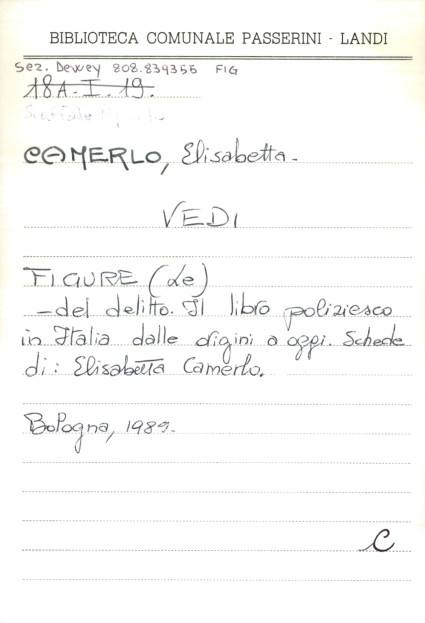 BIBLIOTECA COMUNALE PASSERINI - LANDI
Sez. Dewey 808.839355 FIG
18A-I.19.
CAMERLO, Elisabetta.
VEDI
FIGURE (Le)
- del delitto. Il libro poliziesco
in Italia dalle origini a oggi. Schede
di: Elisabetta Camerlo.
Bologna, 1989.
C